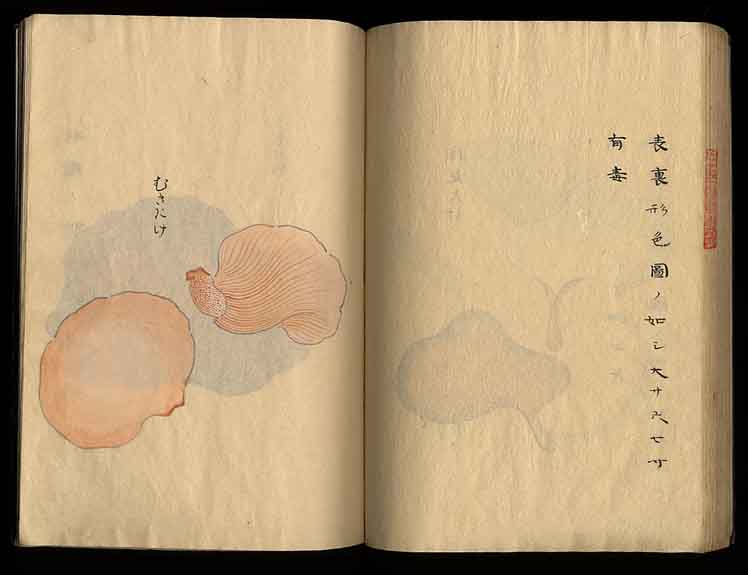 表裏形色圖ノ如シ大サ七寸
有毒
むきたけ